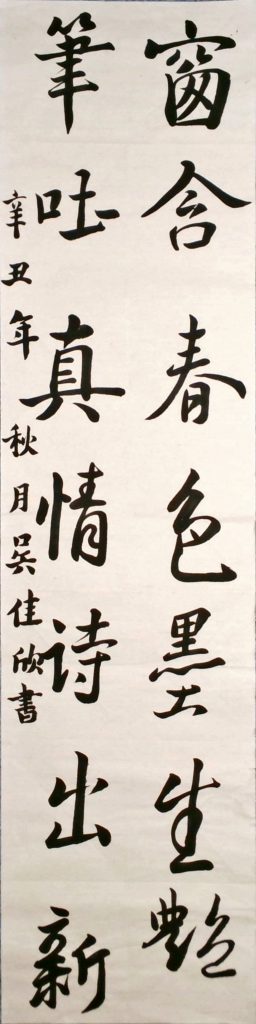 窗含春色墨生艷
筆吐真情詩出新
辛丑年秋月吳佳欣書